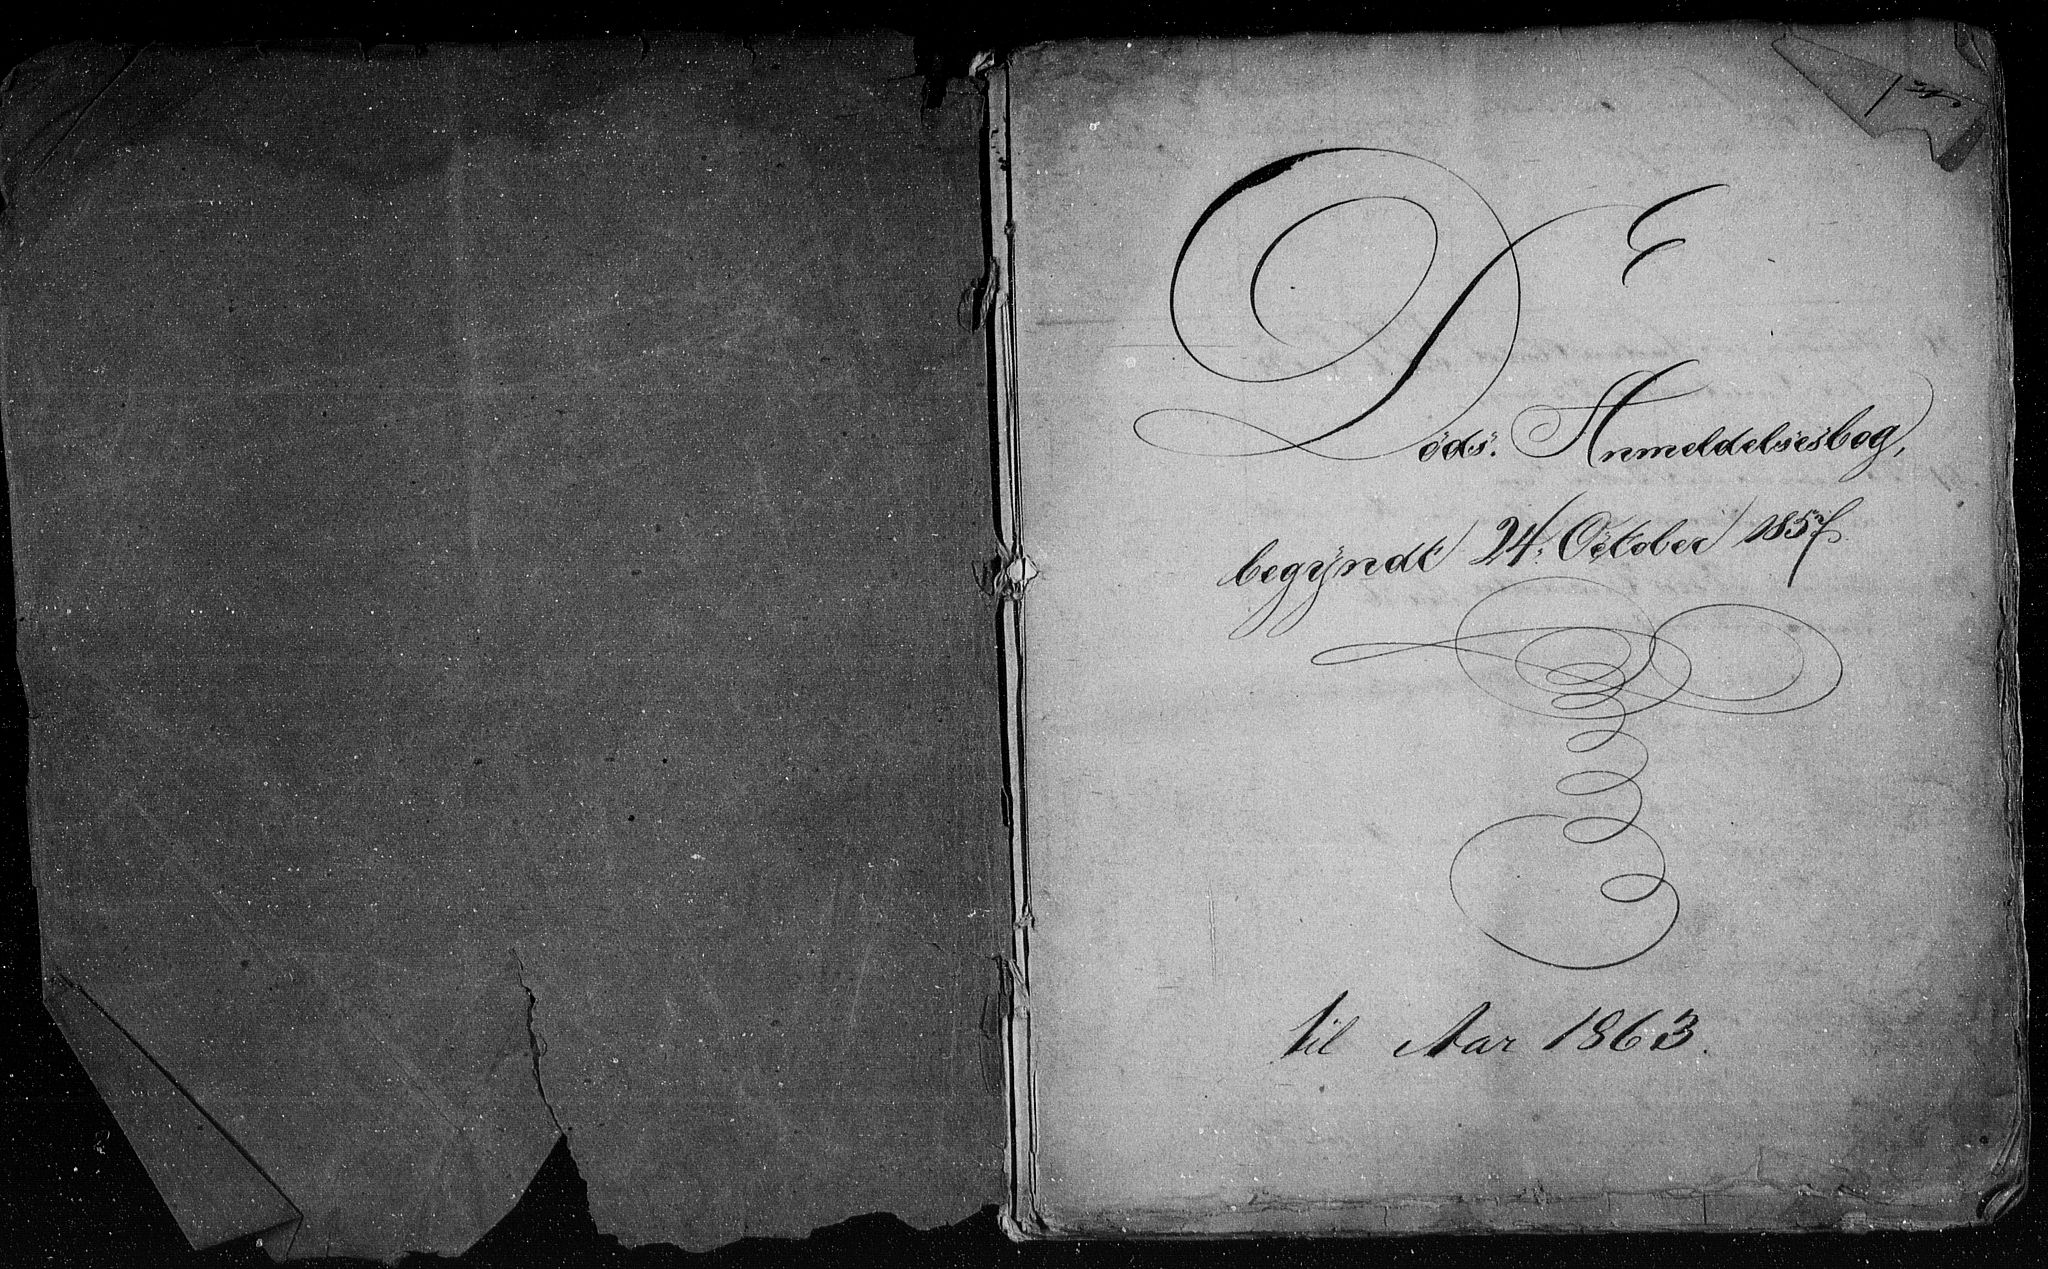 E
Döds. Anmeldelsesbog,
begÿndt 24. October 1857
til Aar 1863.